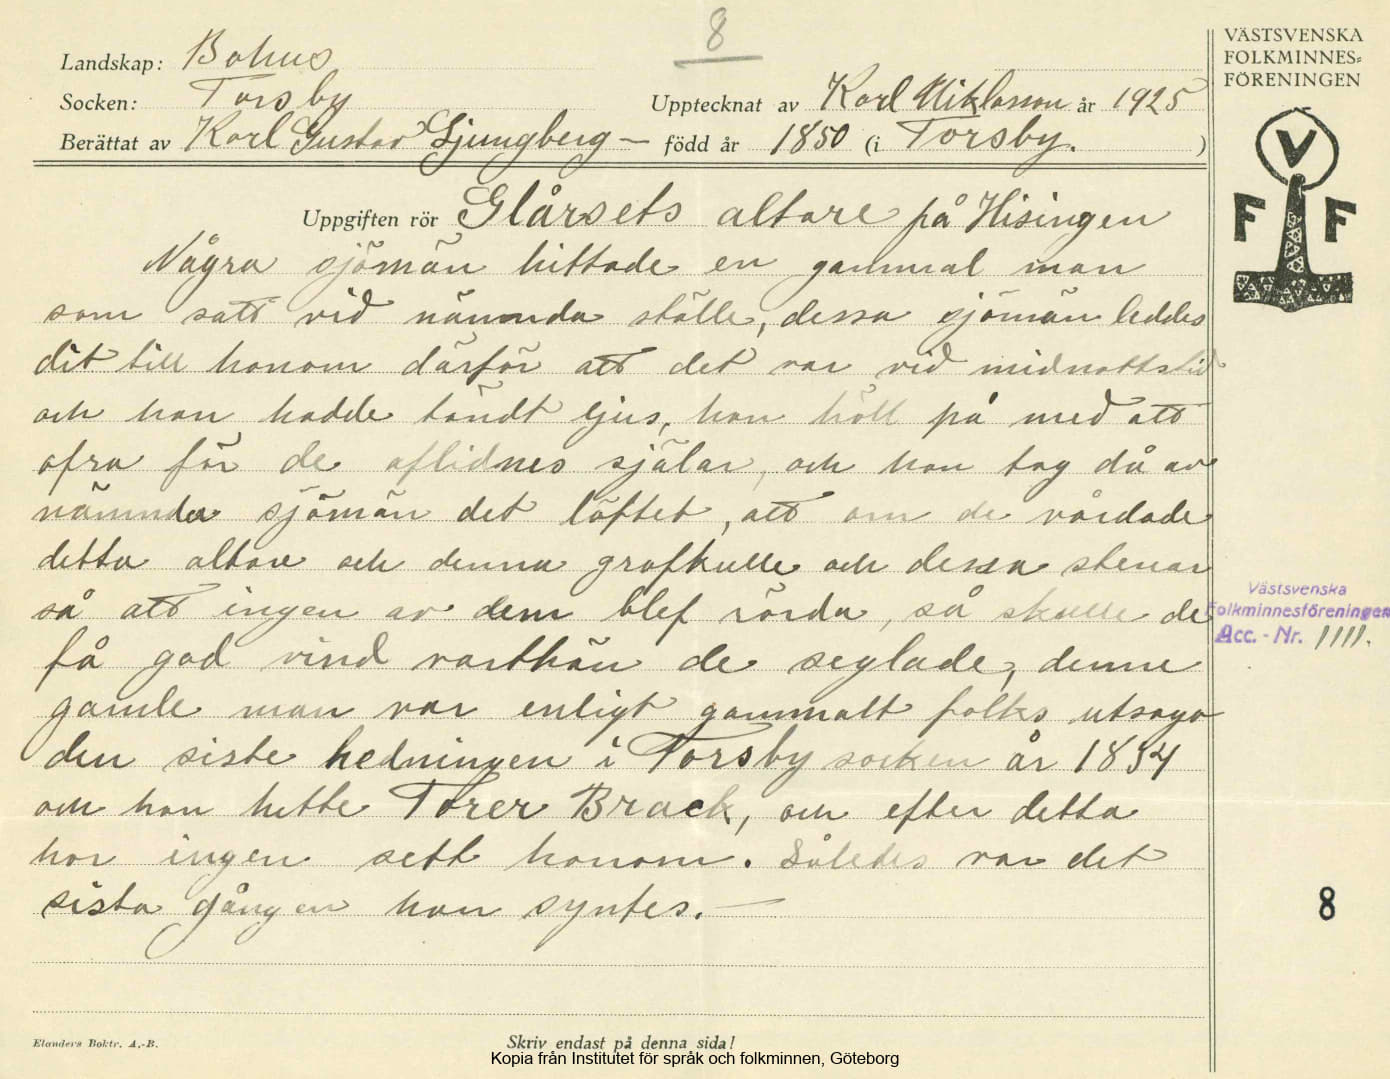 8
Landskap: Bohus
Socken: Torsby
Upptecknat av Karl Niklasson år 1925
Berättat av Karl Gustav Ljungberg — född år 1850 (i Torsby. )
VÄSTSVENSKA
FOLKMINNES=
FÖRENINGEN
V
F F
Uppgiften rör Glårsets altare på Hisingen
Några sjömän hittade en gammal man
som satt vid nämnda ställe, dessa sjömän leddes
dit till honom därför att det var vid midnattstid
och han hadde tändt ljus, han höll på med att
ofra för de aflidnes själar, och han tog då av
nämnda sjömän det löftet, att om de vårdade
detta altare och denna grafkulle och dessa stenar
så att ingen av dem blef rörda, så skulle de
få god vind varthän de seglade, denne
gamle man var enligt gammalt folks utsago
den siste hedningen i Torsby socken år 1854
och han hette Torer Brack, och efter detta
har ingen sett honom. Således var det
sista gången han syntes. —
Västsvenska
Folkminnesföreningen
Acc. - Nr. 1111.
8
Elanders Boktr. A.-B.
Skriv endast på denna sida!
Kopia från Institutet för språk och folkminnen, Göteborg